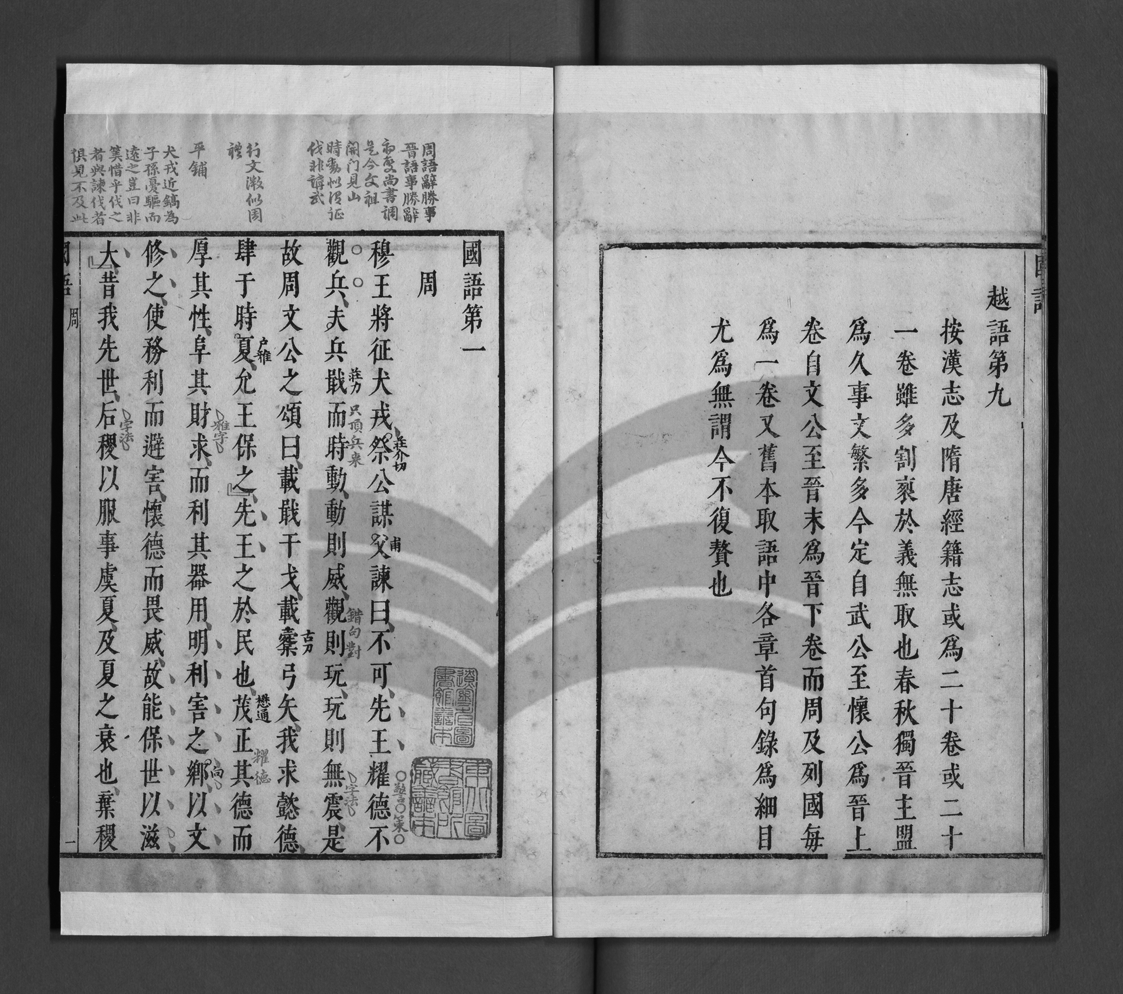 越語第九
按漢志及隋唐經籍志或爲二十卷或二十
一卷雖多割裂於義無取也春秋獨晉主盟
爲久事文繁多今定自武公至懷公爲晉上
卷自文公至晉末爲晉下卷而周及列國每
爲一卷又舊本取語中各章首句錄爲細目
尤爲無謂今不復贅也
周語辭勝事
晉語事勝辭
尚書調
是今文祖
開門見山
伐非諱武
行文
禮
平鋪
犬戎近鎬為
子孫憂驅而
遠之豈曰非
筭惜乎伐之
者與諫伐者
俱見不及此
國語第一
周
穆王將征犬戎祭公謀父諫曰不可先王耀德不
莊介切
甫
觀兵夫兵戢而時動動則威觀則玩玩則無震是
莊力
只頂兵來
錯句對
字法
故周文公之頌曰載戢干戈載櫜弓矢我求懿德
古刀
肆于時夏允王保之先王之於民也茂正其德而
戶雅
懋通
耀德
厚其性阜其財求而利其器用明利害之鄉以文
向
修之使務利而避害懷德而畏威故能保世以滋
大昔我先世后稷以服事虞夏及夏之衰也棄稷
字法
國語 周
一